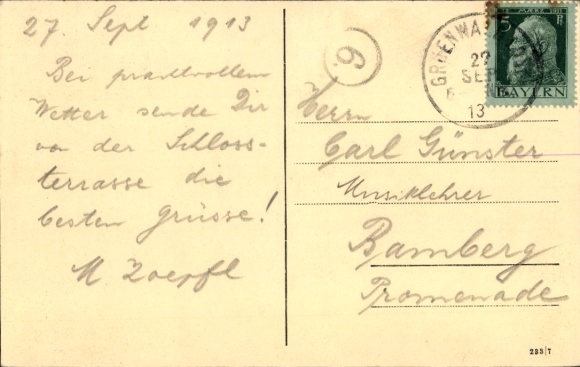 27. Sept 1913
Bei prachtvollem
Wetter sende Dir
von der Schloss-
terrasse die
besten Grüsse!
M. Zoepfl
6
GRUENWA
27
SEP
13
5 P
BAYERN
Herrn
Carl Günster
Musiklehrer
Bamberg
Promenade
233/7